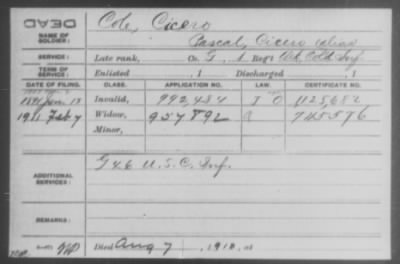 DEAD
NAME OF SOLDIER: Cole, Cicero
Pascal, Cicero (alias)
SERVICE: Late rank, Co. G, 1 Reg't Cold. Inf.
TERM OF SERVICE: Enlisted , 1 Discharged , 1
DATE OF FILING. CLASS. APPLICATION NO. LAW. CERTIFICATE NO.
1891 Jan. 18 Invalid, 992,434 1125,682
1911 Feb 7 Widow, 957892
Minor,
ADDITIONAL SERVICES: G 46 U.S.C. Inf.
REMARKS:
Died Aug 7, 1910, at